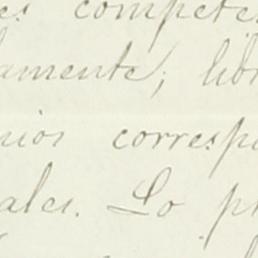 es compete
amente, lib
nios corresp
ales. Lo p